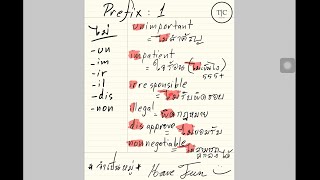 Prefix : 1
TJC
ไม่
-un
-im
-ir
-il
-dis
-non
unimportant
= ไม่สำคัญ
impatient
= ใจร้อน (ไม่ใจเย็น)
555+
irresponsible
= ไม่รับผิดชอบ
illegal
= ผิดกฎหมาย
disapprove
= ไม่ยอมรับ
nonnegotiable
= ไม่
Have Fun